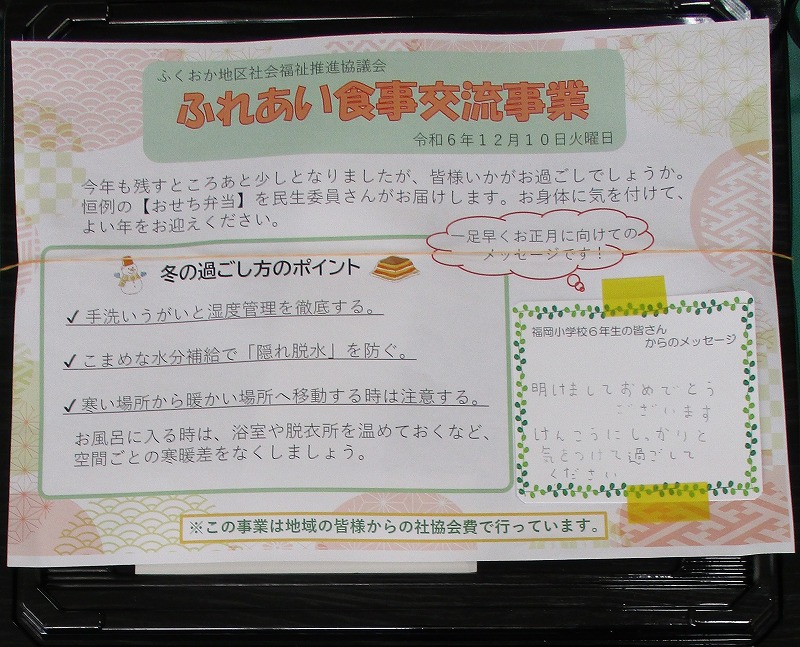 ふくおか地区社会福祉推進協議会
ふれあい食事交流事業
令和6年12月10日火曜日
今年も残すところあと少しとなりましたが、皆様いかがお過ごしでしょうか。
恒例の【おせち弁当】を民生委員さんがお届けします。お身体に気を付けて、
よい年をお迎えください。
冬の過ごし方のポイント
✓手洗いうがいと湿度管理を徹底する。
✓こまめな水分補給で「隠れ脱水」を防ぐ。
✓寒い場所から暖かい場所へ移動する時は注意する。
お風呂に入る時は、浴室や脱衣所を温めておくなど、
空間ごとの寒暖差をなくしましょう。
一足早くお正月に向けての
メッセージです！
福岡小学校6年生の皆さん
からのメッセージ
明けましておめでとう
ございます
けんこうにしっかりと
気をつけて過ごして
ください
※この事業は地域の皆様からの社協会費で行っています。